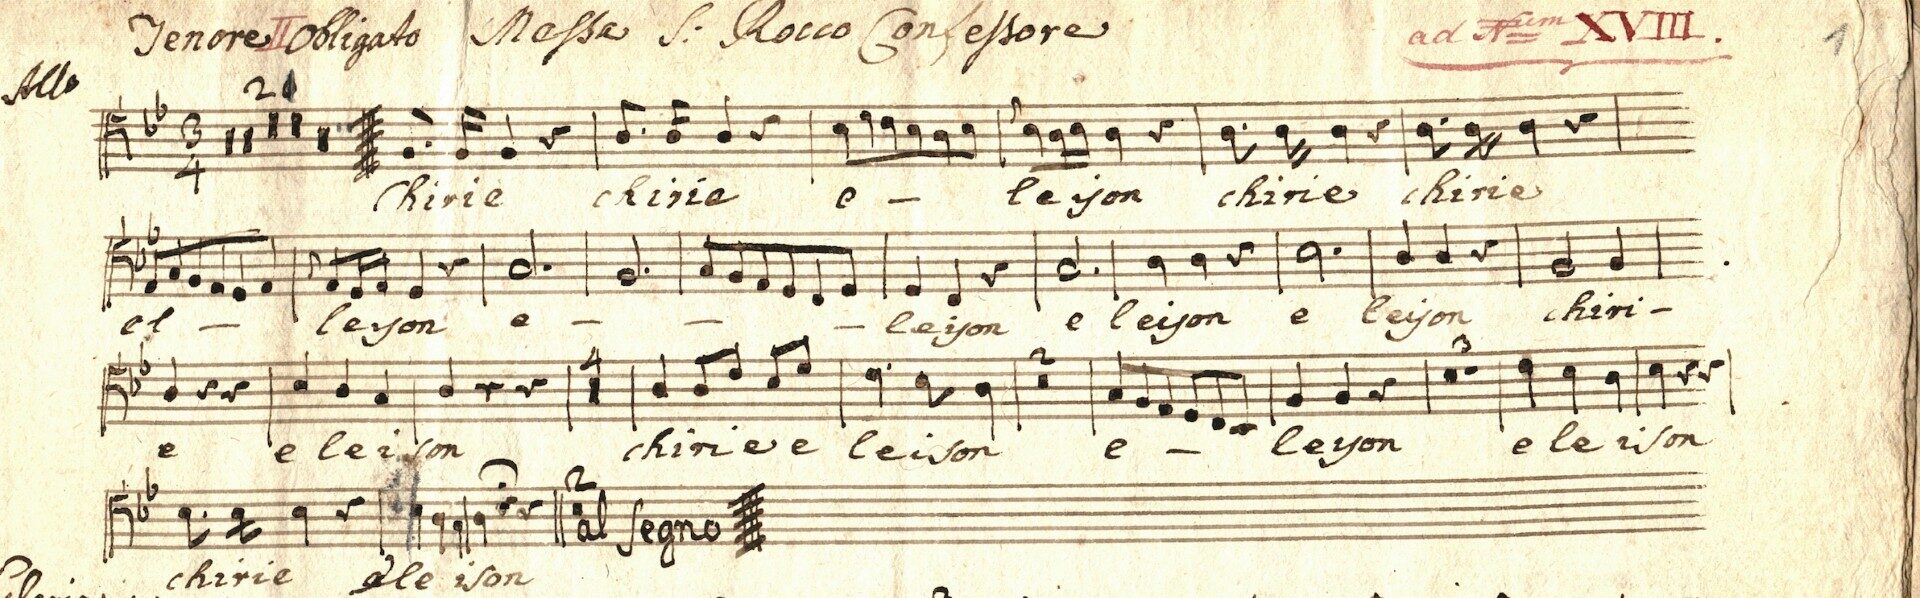 Tenore II Obligato Messa S: Rocco Confessore ad Num XVIII. 1
Allo
2
3 4
Chirie chirie e - leison chirie chirie
el - leison e - - - leison e leison e leison chiri-
4 2 3
e e leison chirie e leison e - leison e le ison
2
al Segno
chirie ele ison